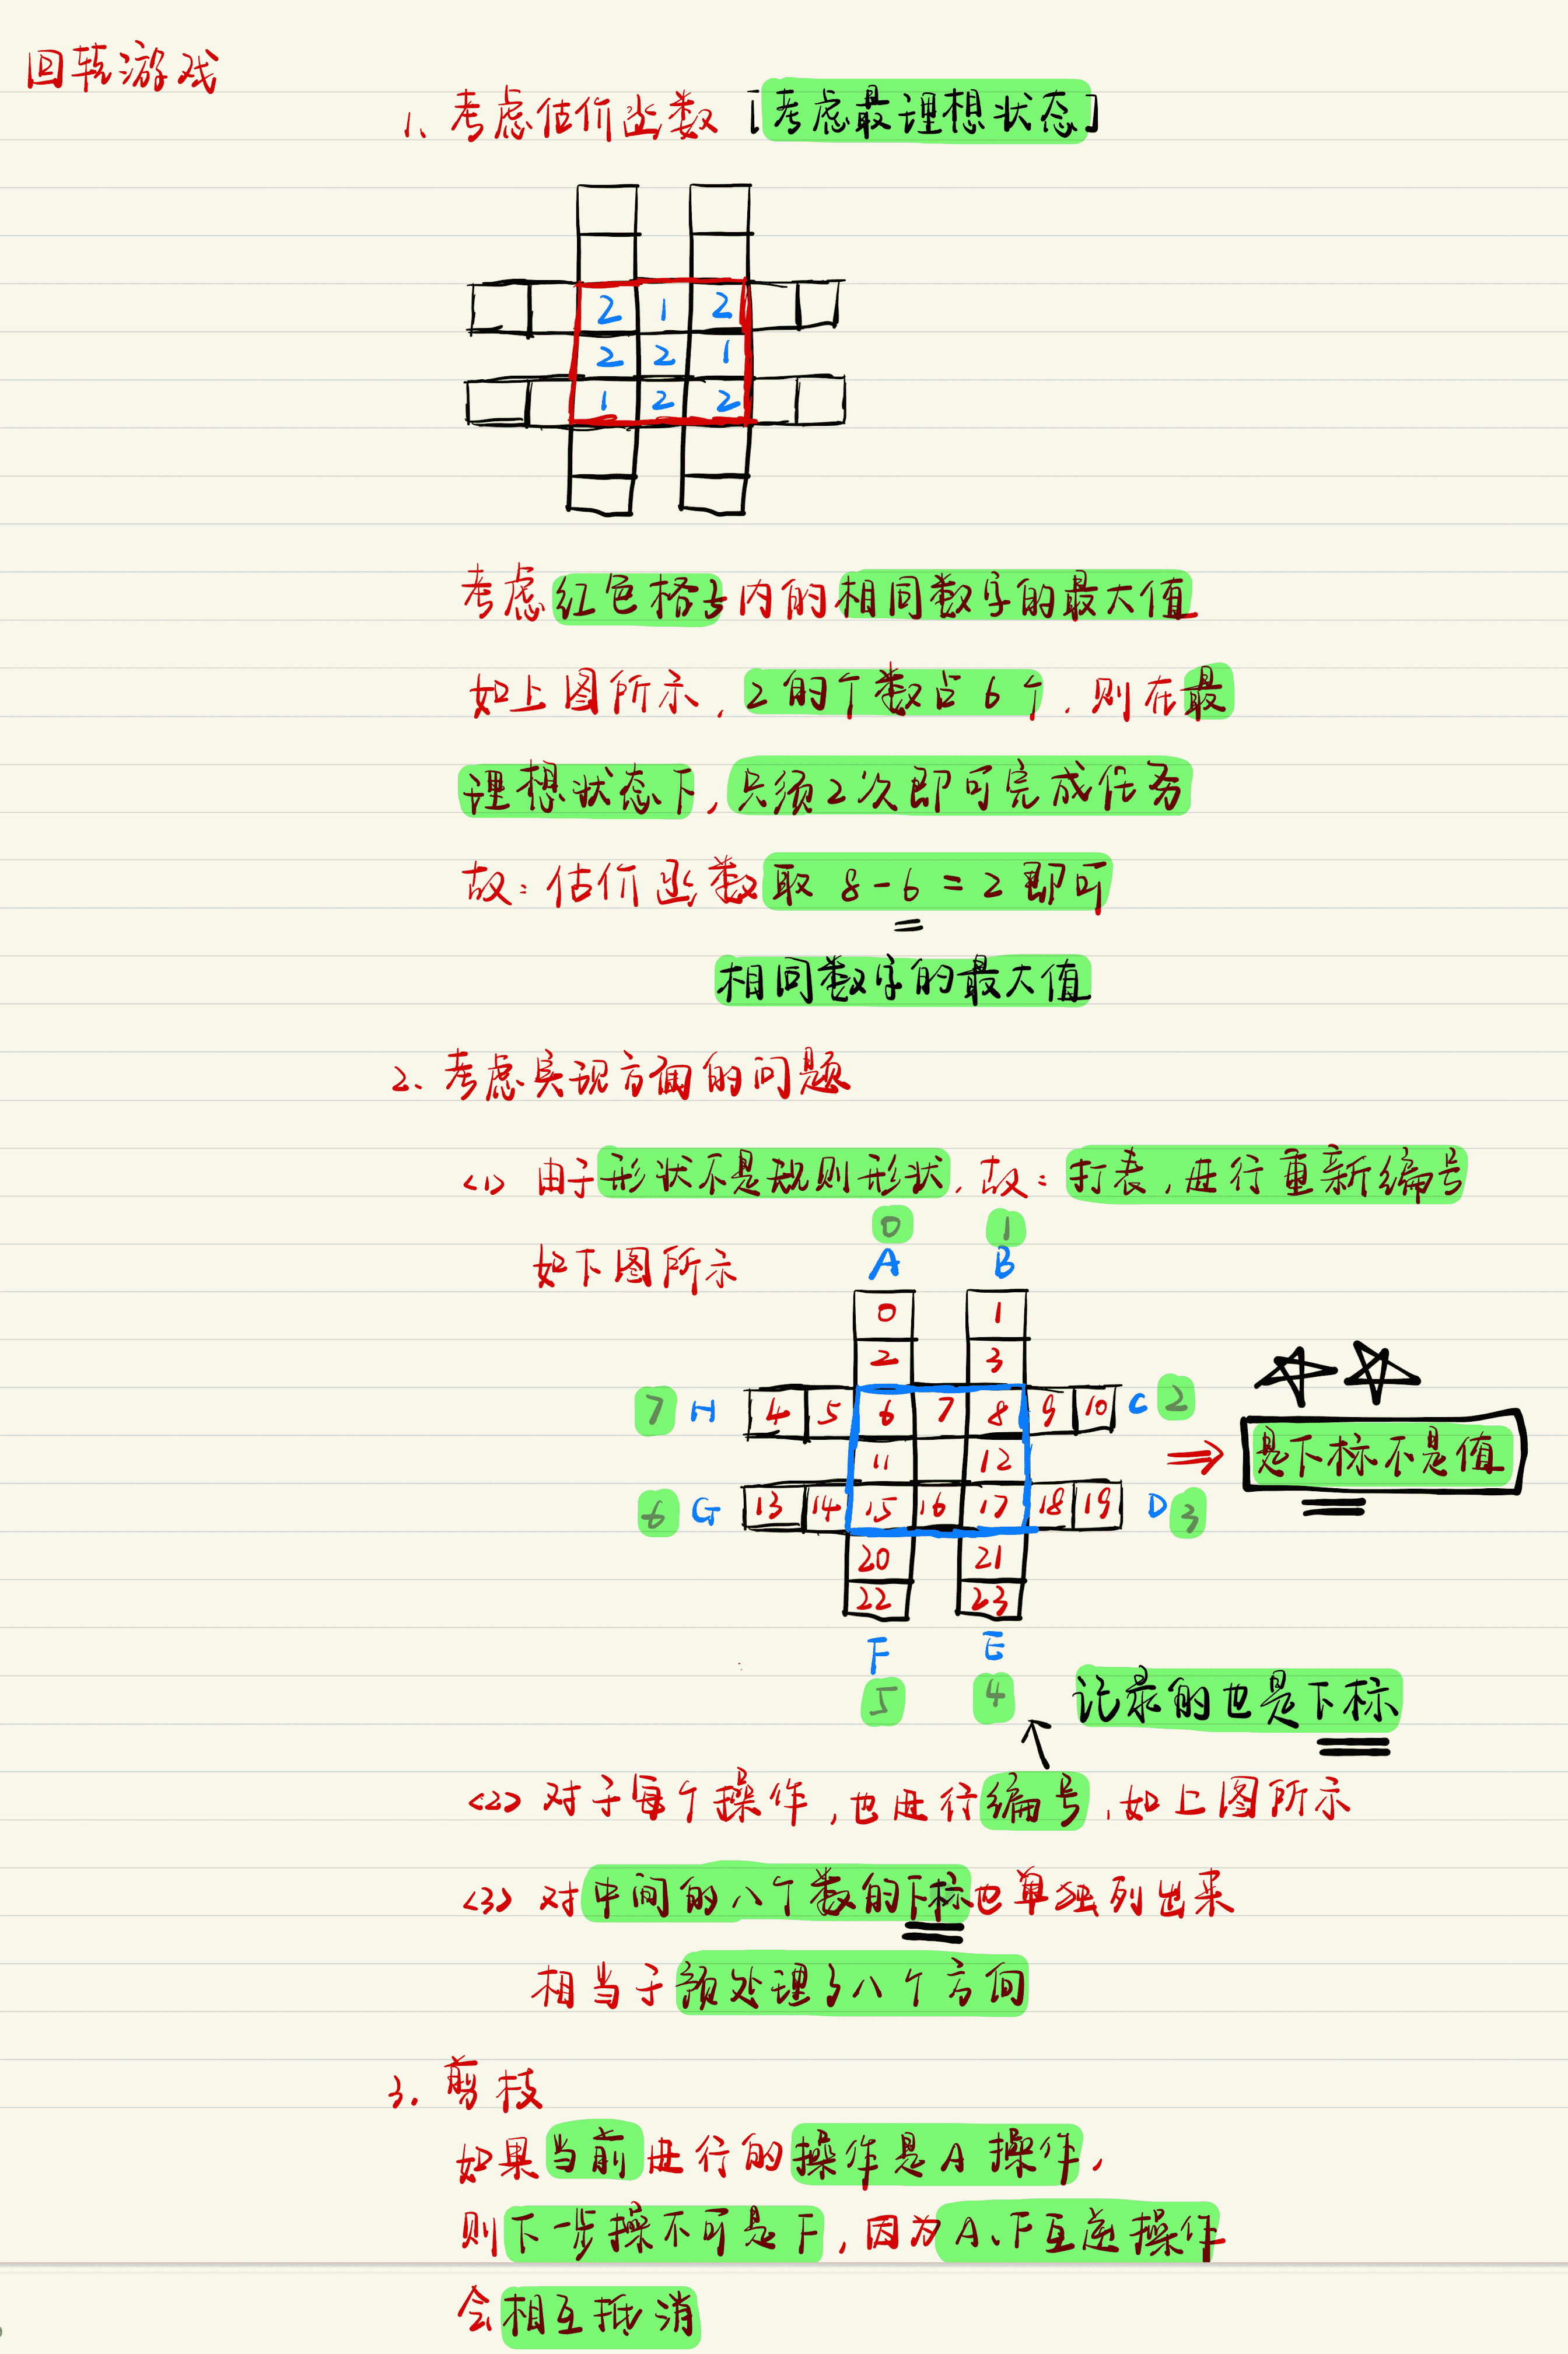 回转游戏
1、考虑估价函数[考虑最理想状态]
2 1 2
2 2 1
1 2 2
考虑红色格子内的相同数字的最大值
如上图所示,2的个数占6个,则在最
理想状态下,只须2次即可完成任务
故:估价函数取 8-6=2 即可
相同数字的最大值
2、考虑实现方面的问题
<1> 由于形状不是规则形状,故:打表,进行重新编号
0 1
如下图所示 A B
0 1
2 3
7 H 4 5 6 7 8 9 10 C 2
11 12
是下标不是值
6 G 13 14 15 16 17 18 19 D 3
20 21
22 23
F E
5 4 记录的也是下标
<2> 对于每个操作,也进行编号,如上图所示
<3> 对中间的八个数的下标也单独列出来
相当于预处理了八个方向
3. 剪枝
如果当前进行的操作是A操作,
则下一步操不可是F,因为A、F互逆操作
会相互抵消